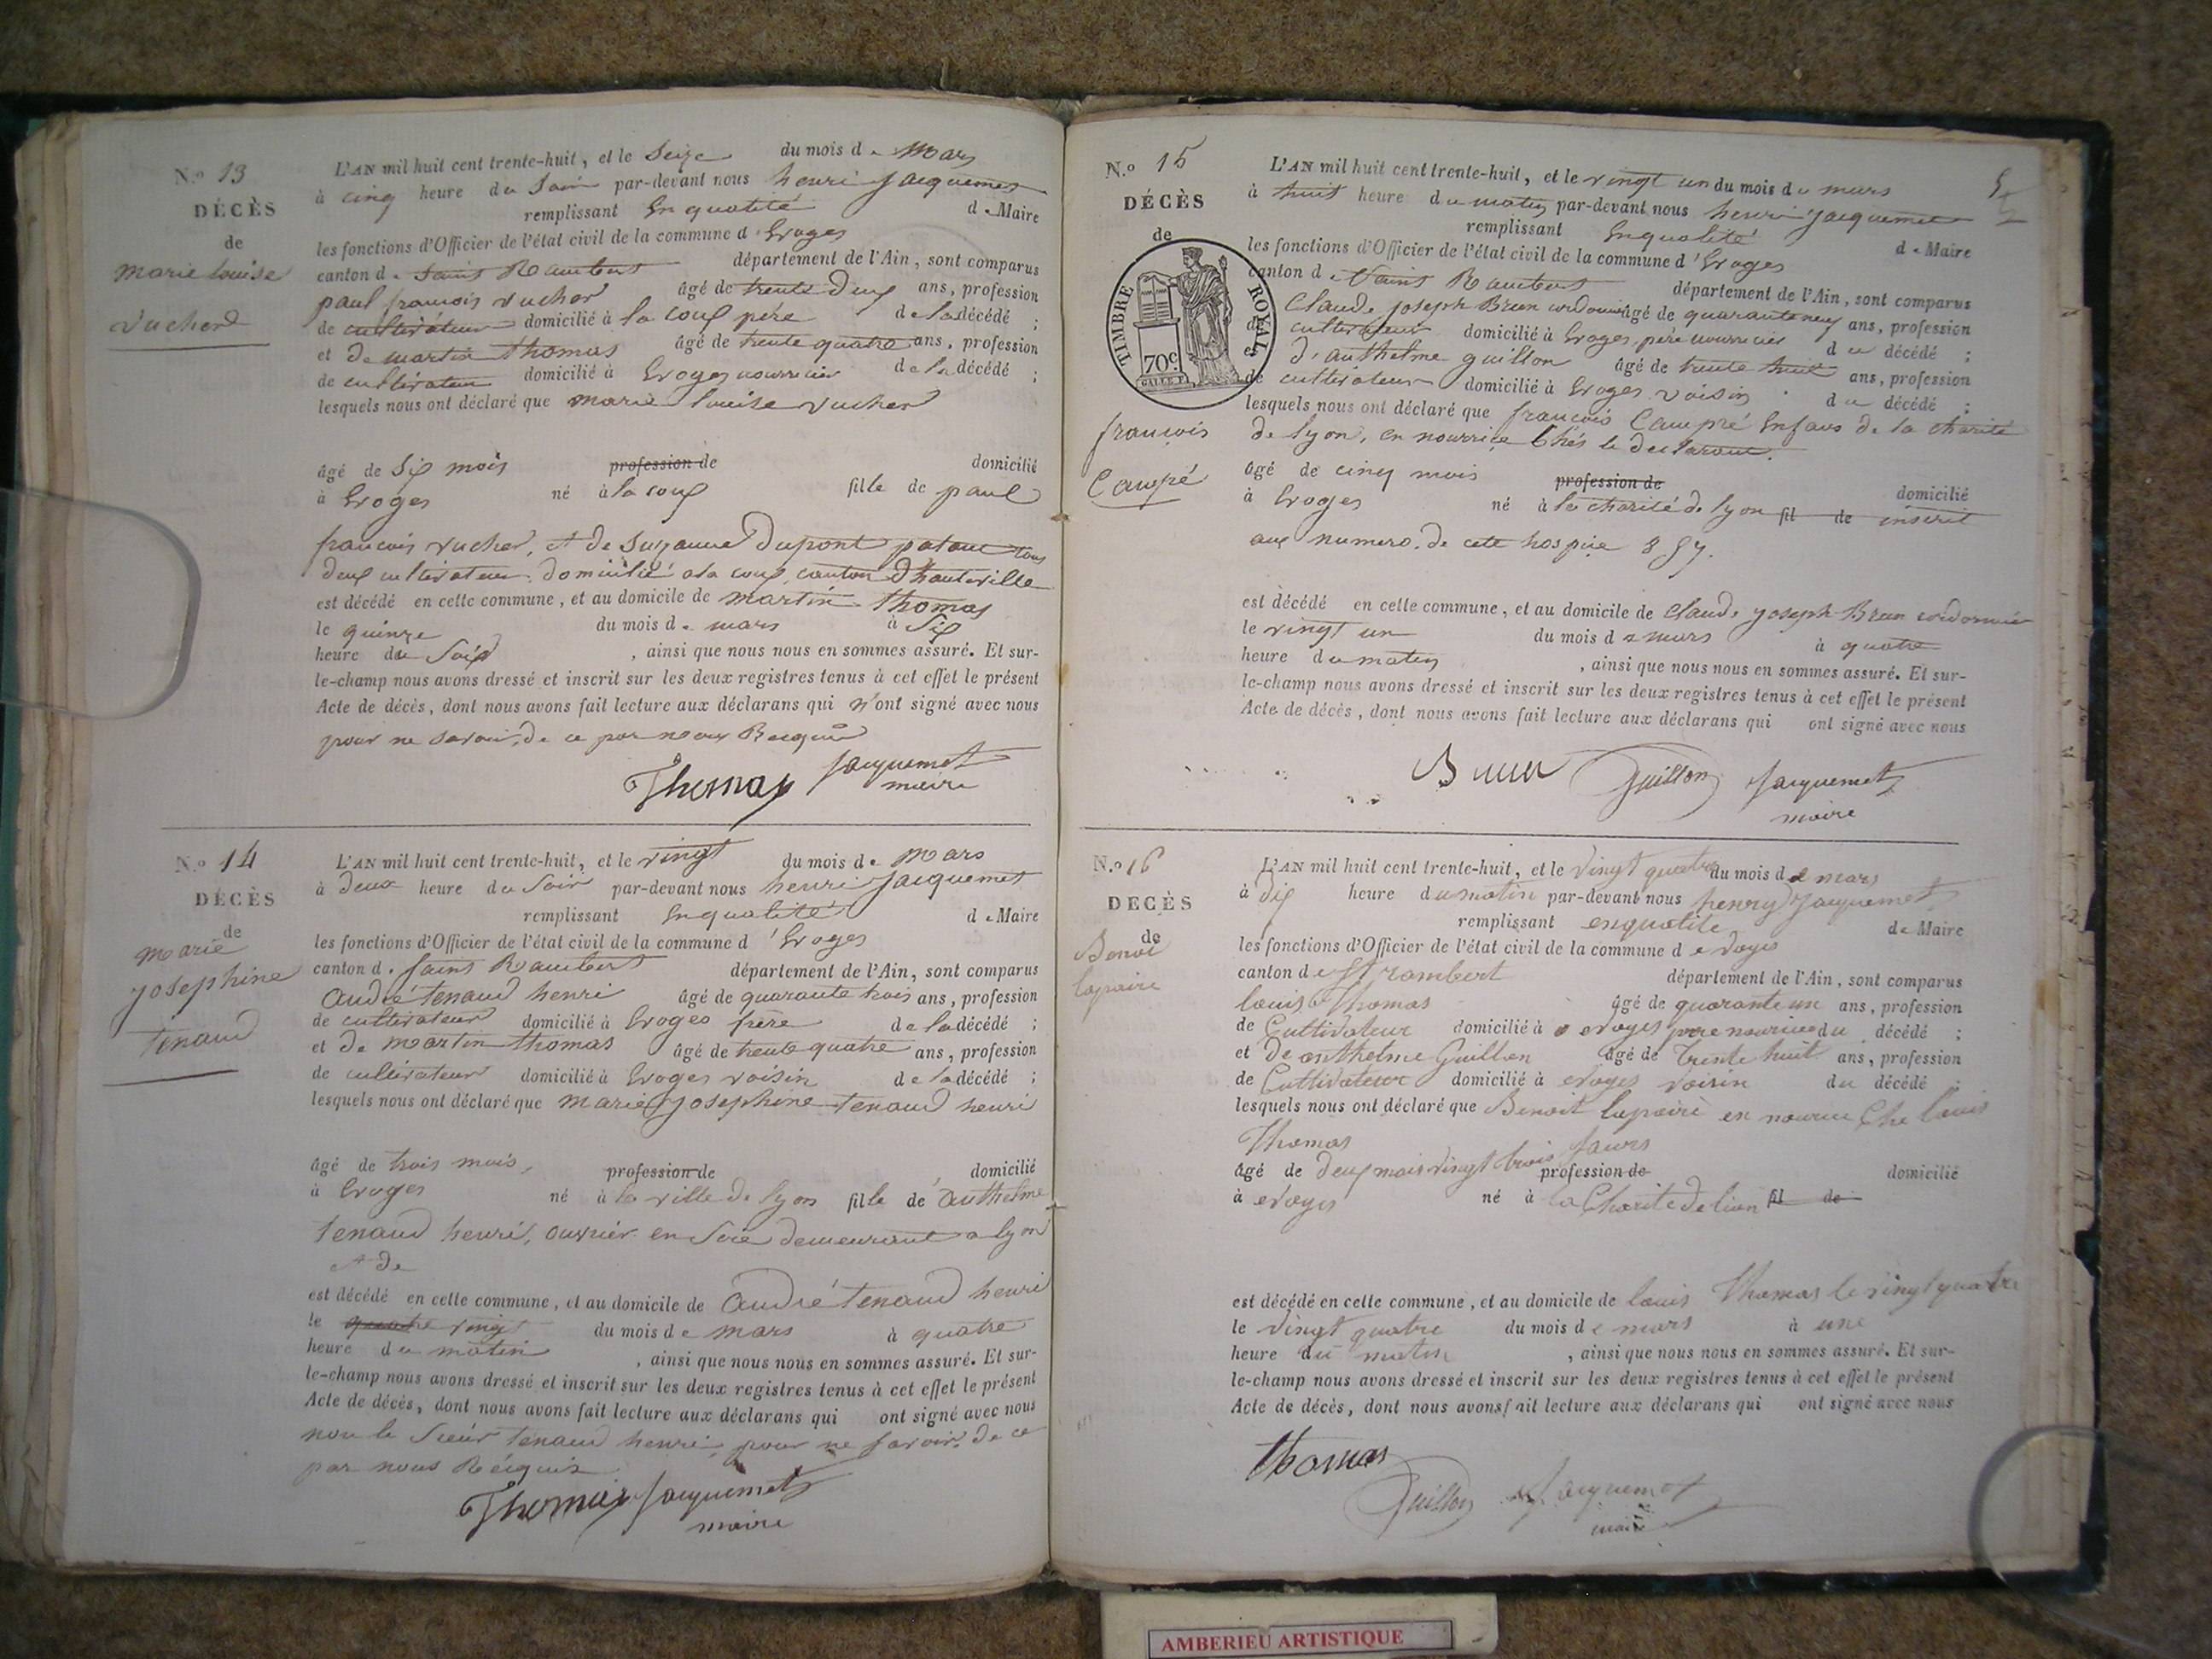 N.o 13
DÉCÈS
de
marie louise
vucher
L'AN mil huit cent trente-huit, et le Seize du mois de Mars
à cinq heure du Soir par-devant nous henri Jacquemet
remplissant En qualité de Maire
les fonctions d'Officier de l'état civil de la commune d'Evoges
canton de Saint Rambert département de l'Ain, sont comparus
paul françois vucher âgé de trente deux ans, profession
de cultivateur domicilié à la coux père de la décédé ;
et de martin thomas âgé de trente quatre ans, profession
de cultivateur domicilié à Evoges nourricier de la décédé ;
lesquels nous ont déclaré que marie louise vucher
âgé de Six mois profession de domicilié
à Evoges né à la coux fille de paul
francois vucher, et de Suzanne Dupont patout tous
deux cultivateur domicilié a la coux, canton d'hauteville
est décédé en cette commune, et au domicile de martin thomas
le quinze du mois de mars à Six
heure du Soir, ainsi que nous nous en sommes assuré. Et sur-
le-champ nous avons dressé et inscrit sur les deux registres tenus à cet effet le présent
Acte de décès, dont nous avons fait lecture aux déclarans qui n'ont signé avec nous
pour ne savoir, de ce par nous Requis
Thomas Jacquemet
maire
N.o 14
DÉCÈS
de
marie
josephine
tenaud
L'AN mil huit cent trente-huit, et le vingt du mois de Mars
à deux heure du Soir par-devant nous henri Jacquemet
remplissant En qualité de Maire
les fonctions d'Officier de l'état civil de la commune d'Evoges
canton de Saint Rambert département de l'Ain, sont comparus
André tenaud henri âgé de quarante trois ans, profession
de cultivateur domicilié à Evoges frère de la décédé ;
et de martin thomas âgé de trente quatre ans, profession
de cultivateur domicilié à Evoges voisin de la décédé ;
lesquels nous ont déclaré que marie josephine tenaud henri
âgé de trois mois, profession de domicilié
à Evoges né à la ville de lyon fille de Anthelme
tenaud henri, ouvrier en Soie demeurant a lyon
et de
est décédé en cette commune, et au domicile de André tenaud henri
le vingt du mois de mars à quatre
heure du matin, ainsi que nous nous en sommes assuré. Et sur-
le-champ nous avons dressé et inscrit sur les deux registres tenus à cet effet le présent
Acte de décès, dont nous avons fait lecture aux déclarans qui ont signé avec nous
non le Sieur tenaud henri, pour ne savoir, de ce
par nous Réquis
Thomas Jacquemet
maire
N.o 15
DÉCÈS
de
TIMBRE ROYAL
70c
françois
Campé
L'AN mil huit cent trente-huit, et le vingt un du mois de mars
à huit heure du matin par-devant nous henri Jacquemet
remplissant En qualité de Maire
les fonctions d'Officier de l'état civil de la commune d'Evoges
canton de Saint Rambert département de l'Ain, sont comparus
Claude joseph Brun cordonnier âgé de quarante neuf ans, profession
de cultivateur domicilié à Evoges, père nourricier du décédé ;
et d'anthelme guillon âgé de trente huit ans, profession
de cultivateur domicilié à Evoges voisin du décédé ;
lesquels nous ont déclaré que françois Campré Enfans de la charité
de lyon, en nourrice Chés le declarant.
âgé de cinq mois profession de domicilié
à Evoges né à la charité de lyon fil de inscrit
aux numero de cete hospice 857.
est décédé en cette commune, et au domicile de Claude joseph Brun cordonnier
le vingt un du mois de mars à quatre
heure du matin, ainsi que nous nous en sommes assuré. Et sur-
le-champ nous avons dressé et inscrit sur les deux registres tenus à cet effet le présent
Acte de décès, dont nous avons fait lecture aux déclarans qui ont signé avec nous
Brun Guillon Jacquemet
maire
N.o 16
DECÈS
de
Benoi
lapaire
L'AN mil huit cent trente-huit, et le vingt quatre du mois de mars
à dix heure du matin par-devant nous henry Jacquemet
remplissant enqualite de Maire
les fonctions d'Officier de l'état civil de la commune de evoges
canton de St rambert département de l'Ain, sont comparus
louis Thomas âgé de quarante un ans, profession
de Cultivateur domicilié à evoges pere nourice du décédé ;
et de anthelme Guillon âgé de trente huit ans, profession
de Cultivateur domicilié à evoges voisin du décédé ;
lesquels nous ont déclaré que Benoit lapaire en nourice Che louis
Thomas
âgé de deux mois vingt trois jours profession de domicilié
à evoges né à la Charite de lion fil de
est décédé en cette commune, et au domicile de louis Thomas le vingt quatre
le vingt quatre du mois de mars à une
heure du matin, ainsi que nous nous en sommes assuré. Et sur-
le-champ nous avons dressé et inscrit sur les deux registres tenus à cet effet le présent
Acte de décès, dont nous avons fait lecture aux déclarans qui ont signé avec nous
thomas
Guillon Jacquemet
maire
AMBERIEU ARTISTIQUE